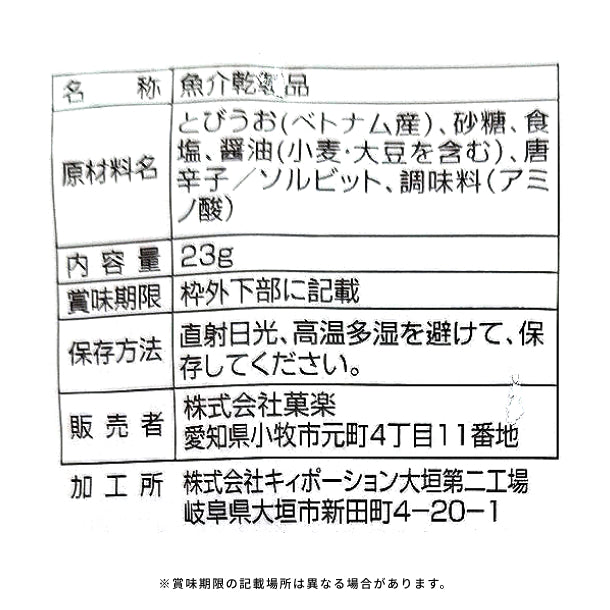 名称 魚介乾製品
原材料名 とびうお(ベトナム産)、砂糖、食
塩、醤油(小麦・大豆を含む)、唐
辛子／ソルビット、調味料(アミ
ノ酸)
内容量 23g
賞味期限 枠外下部に記載
保存方法 直射日光、高温多湿を避けて、保
存してください。
販売者 株式会社菓楽
愛知県小牧市元町4丁目11番地
加工所 株式会社キィポーション大垣第二工場
岐阜県大垣市新田町4-20-1
※賞味期限の記載場所は異なる場合があります。